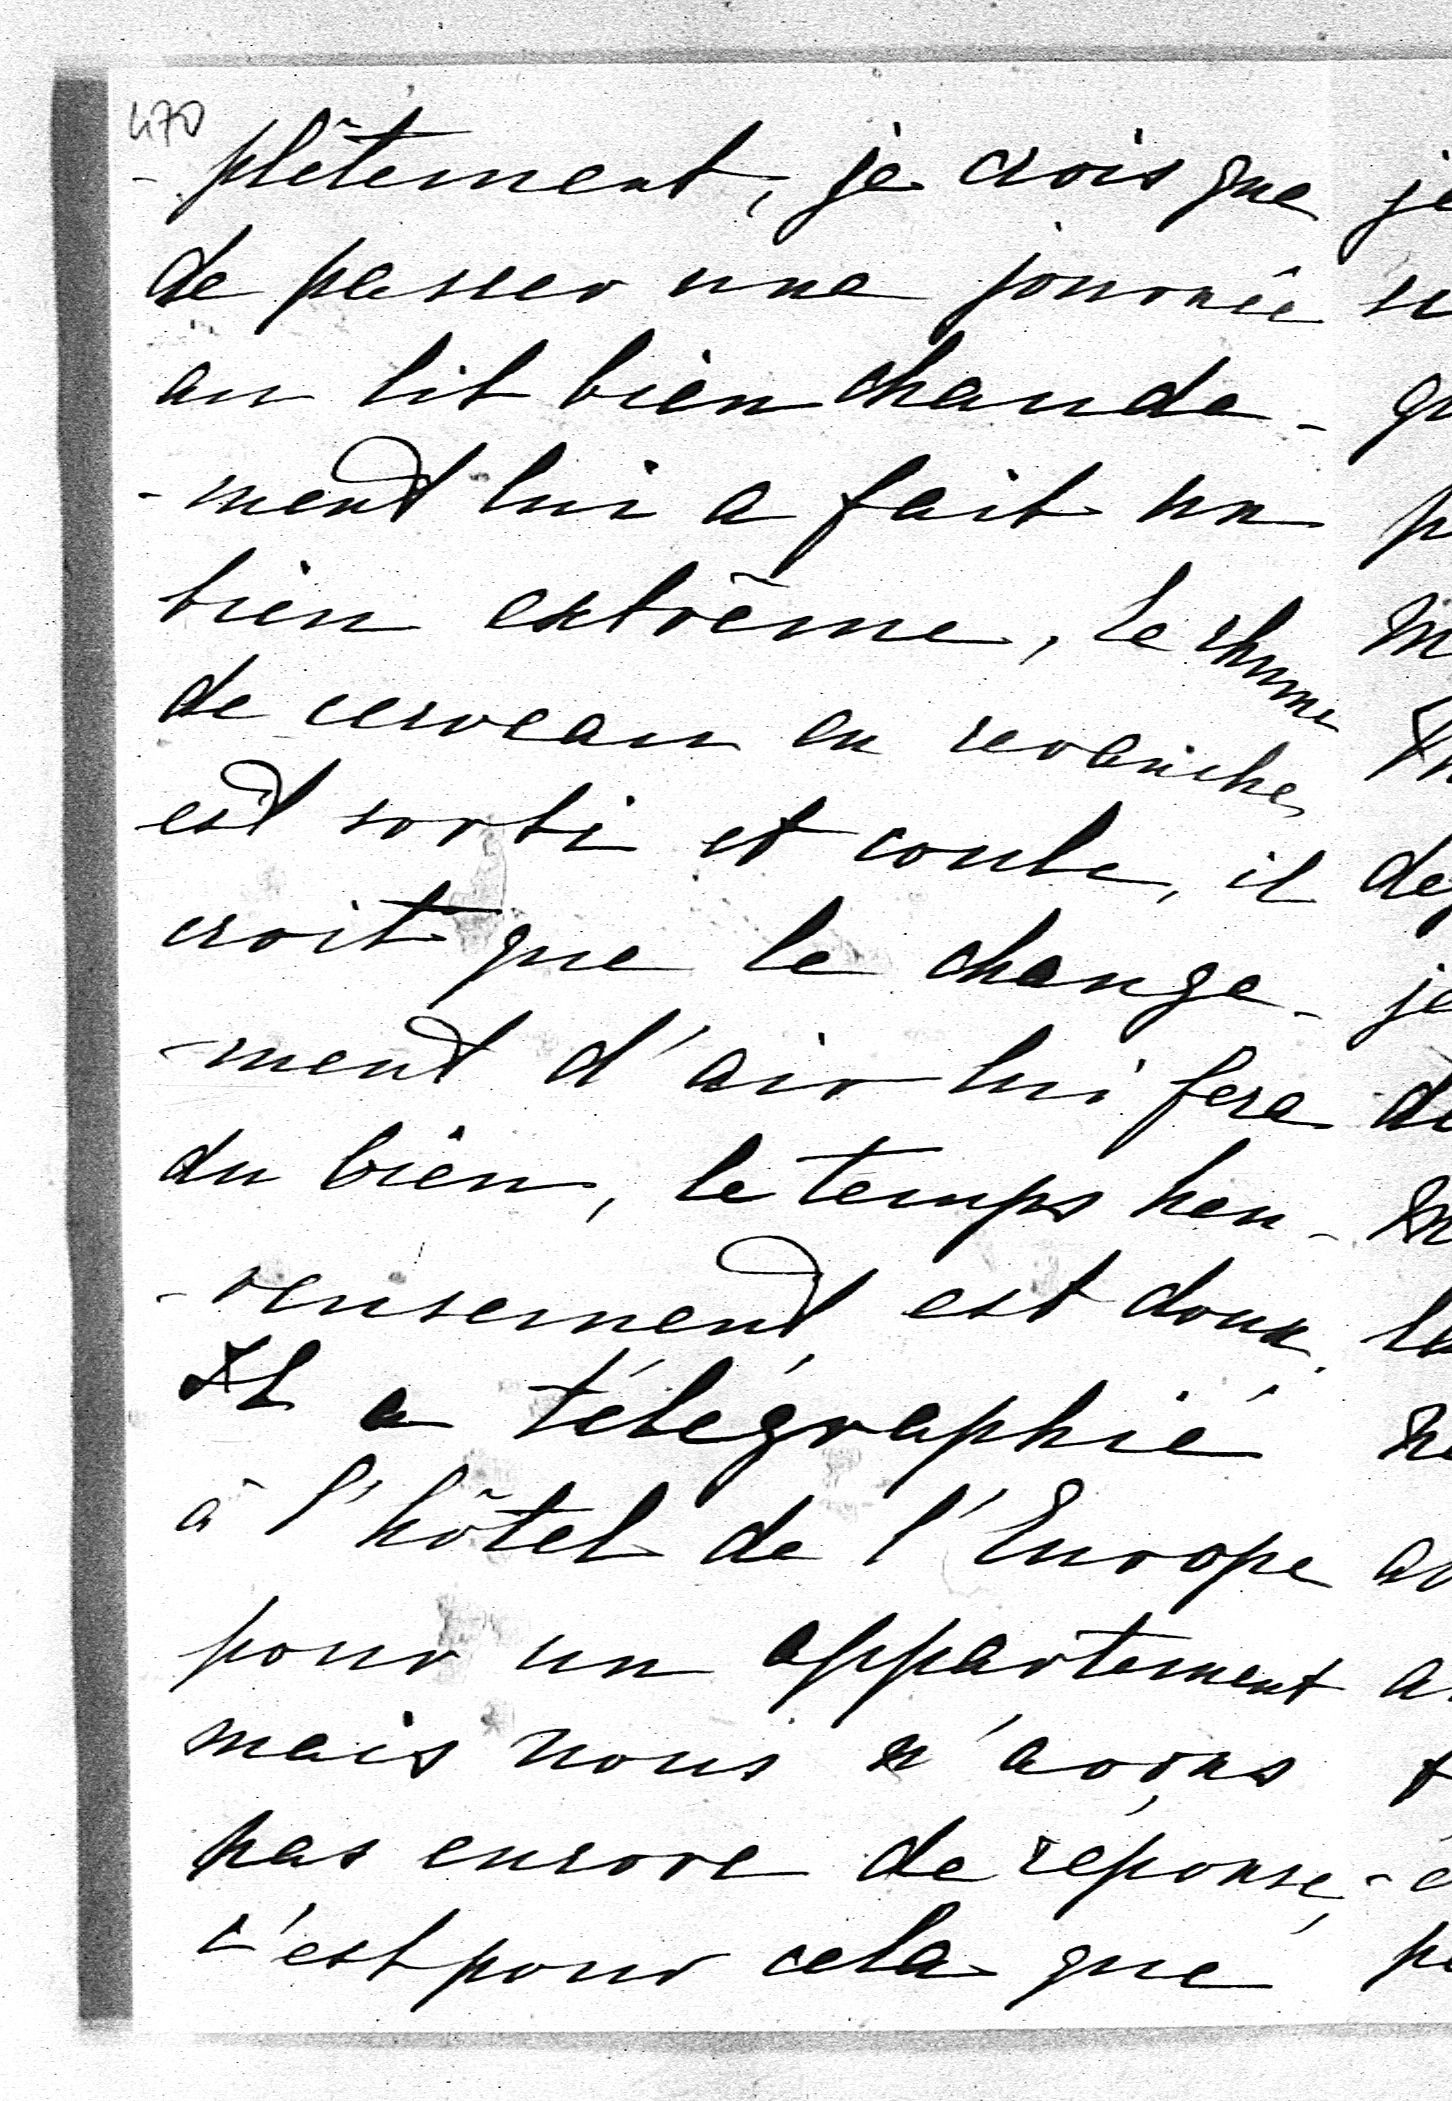 470
- plêtement, je crois que
de passer une journée
au lit bien chaude-
-ment lui a fait un
bien extrême, le rhume
de cerveau en revanche
est sorti et coule, il
croit que le change-
-ment d'air lui fera
du bien, le temps heu-
-reusement est doux.
Il a télégraphié
à l'hôtel de l'Europe
pour un appartement
mais nous n'avons
pas encore de réponse,
c'est pour cela que